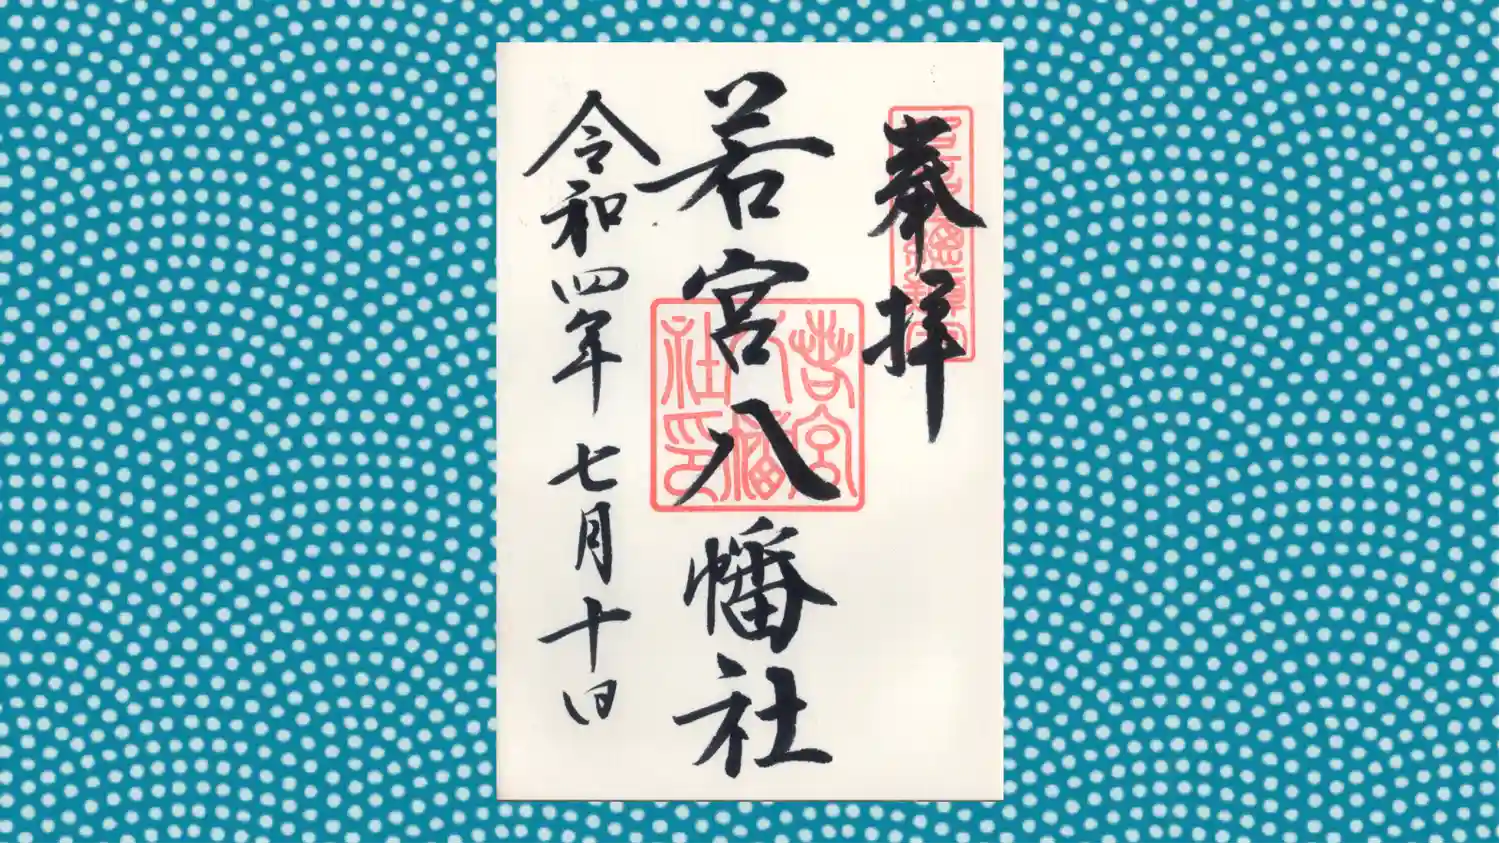 奉拝
若宮八幡社
令和四年七月十日
若宮
八幡
社印